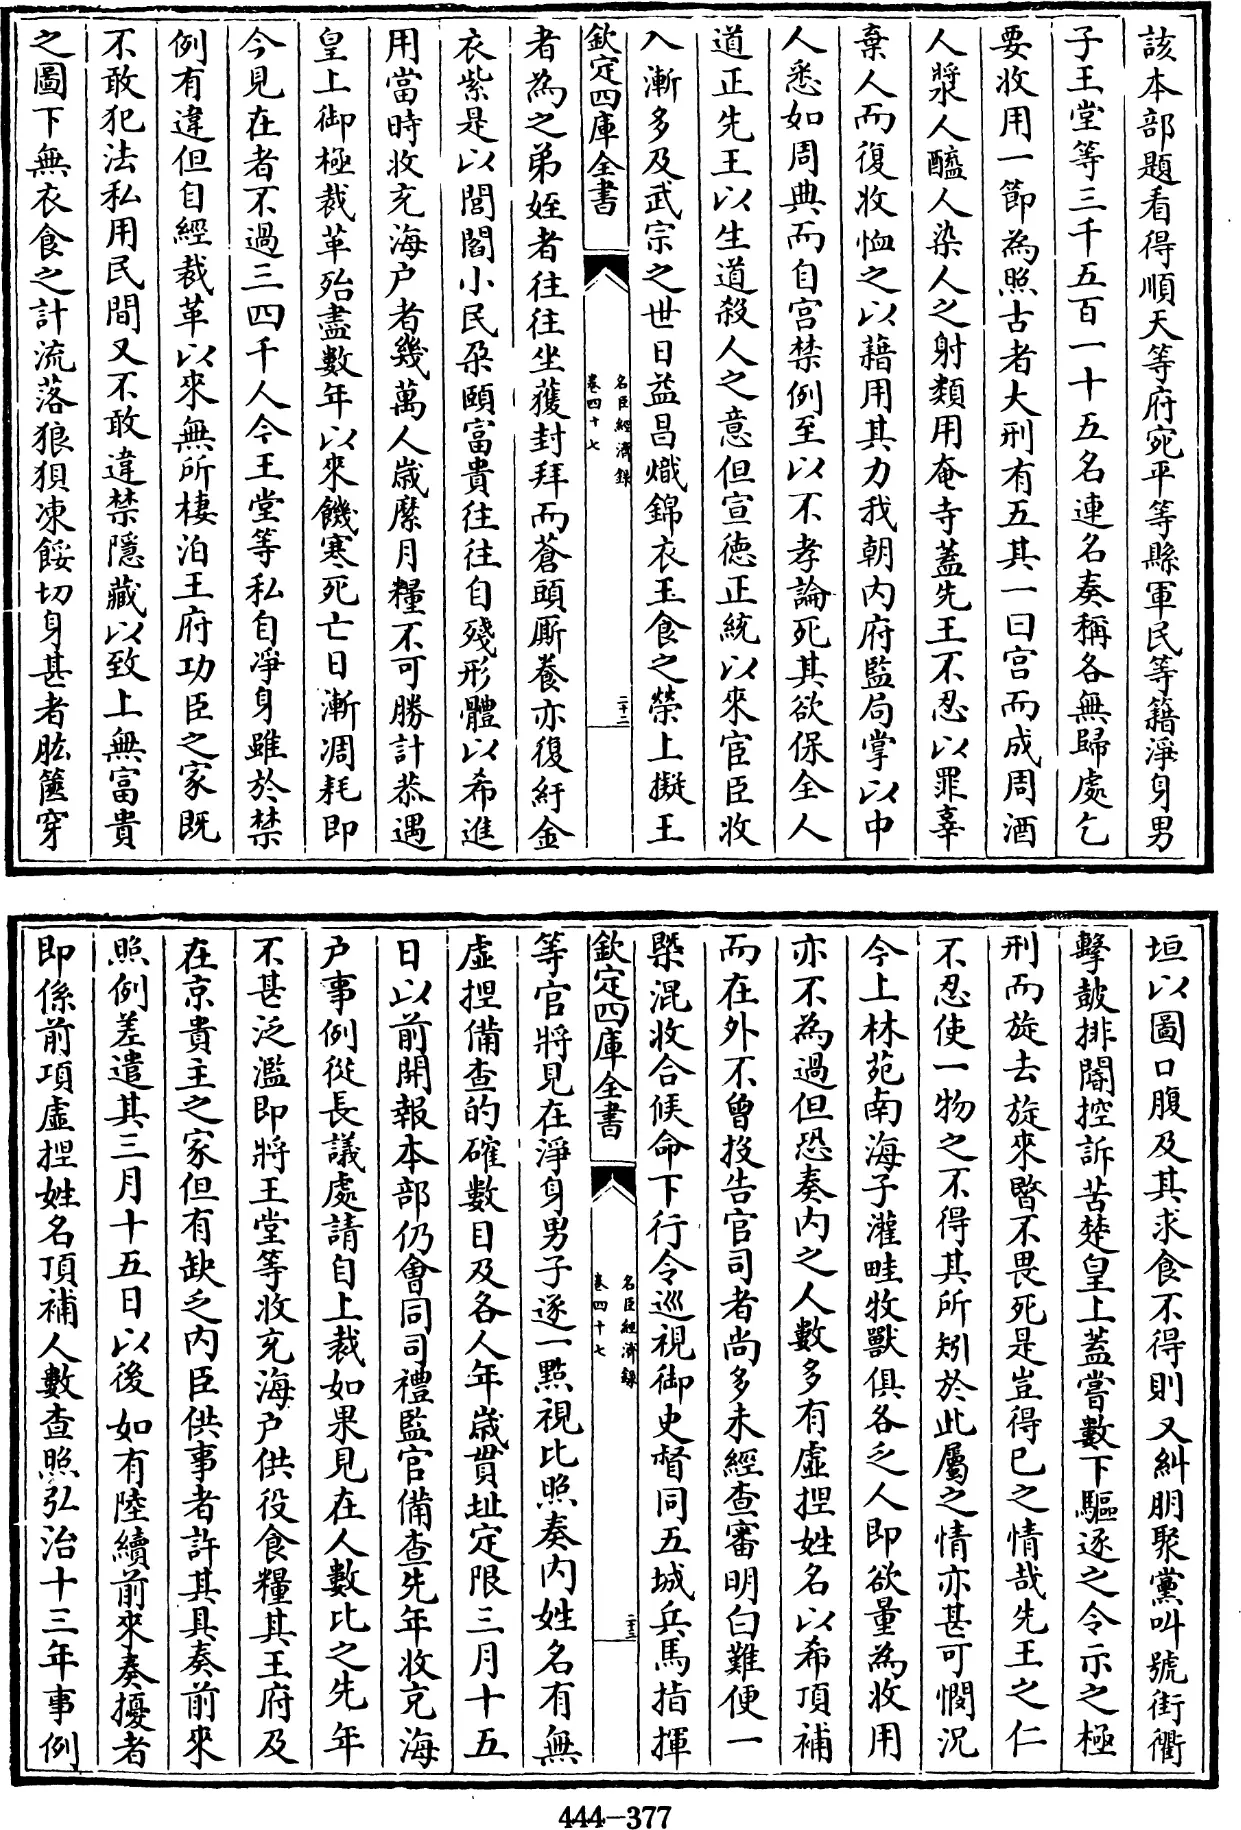 該本部題看得順天等府宛平等縣軍民等籍淨身男
子王堂等三千五百一十五名連名奏稱各無歸處乞
要收用一節為照古者大刑有五其一曰宫而成周酒
人漿人醯人染人之射類用奄寺蓋先王不忍以罪辜
棄人而復收恤之以藉用其力我朝内府監局掌以中
人悉如周典而自宫禁例至以不孝論死其欲保全人
道正先王以生道殺人之意但宣徳正統以來宦臣收
入漸多及武宗之世日益昌熾錦衣玉食之榮上擬王
欽定四庫全書
名臣經濟録
卷四十七
二十二
者為之弟姪者往往坐獲封拜而蒼頭厮養亦復紆金
衣紫是以閭閻小民朶頤富貴往往自殘形體以希進
用當時收充海户者幾萬人嵗縻月糧不可勝計恭遇
皇上御極裁革殆盡數年以來饑寒死亡日漸凋耗即
今見在者不過三四千人今王堂等私自淨身雖於禁
例有違但自經裁革以來無所棲泊王府功臣之家既
不敢犯法私用民間又不敢違禁隱藏以致上無富貴
之圖下無衣食之計流落狼狽凍餒切身甚者胠篋穿
垣以圖口腹及其求食不得則又糾朋聚黨叫號街衢
擊鼓排閽控訴苦楚皇上蓋嘗數下驅逐之令示之極
刑而旋去旋來暋不畏死是豈得已之情哉先王之仁
不忍使一物之不得其所矧於此屬之情亦甚可憫況
今上林苑南海子灌畦牧獸俱各乏人即欲量為收用
亦不為過但恐奏内之人數多有虛捏姓名以希頂補
而在外不曾投告官司者尚多未經查審明白難便一
槩混收合候命下行令巡視御史督同五城兵馬指揮
欽定四庫全書
名臣經濟録
卷四十七
二十三
等官將見在淨身男子逐一㸃視比照奏内姓名有無
虛捏備查的確數目及各人年嵗貫址定限三月十五
日以前開報本部仍會同司禮監官備查先年收充海
户事例從長議處請自上裁如果見在人數比之先年
不甚泛濫即將王堂等收充海户供役食糧其王府及
在京貴主之家但有缺乏内臣供事者許其具奏前來
照例差遣其三月十五日以後如有陸續前來奏擾者
即係前項虛捏姓名頂補人數查照弘治十三年事例
444-377